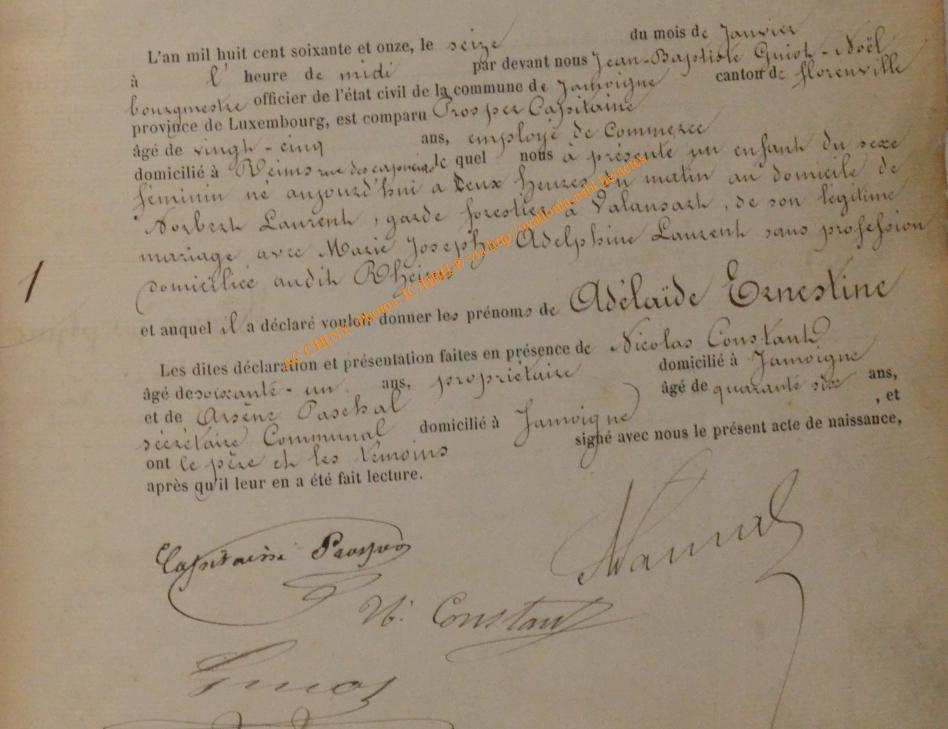 L'an mil huit cent soixante et onze, le seize du mois de Janvier
à l' heure de midi par devant nous Jean-Baptiste Guiot-Noël
bourgmestre officier de l'état civil de la commune de Jamoigne canton de florenville
province de Luxembourg, est comparu Prosper Capitaine
âgé de vingt-cinq ans, employé de Commerce
domicilié à Reims rue des capucins le quel nous à présenté un enfant du sexe
féminin né aujourd'hui à deux heures du matin au domicile de
Norbert Laurent, garde forestier à Valansart, de son légitime
mariage avec Marie Joseph Adelphine Laurent sans profession
domiciliée audit Rheims
1
et auquel il a déclaré vouloir donner les prénoms de Adélaïde Ernestine
Les dites déclaration et présentation faites en présence de Nicolas Constant
âgé de soixante-un ans, propriétaire domicilié à Jamoigne
et de Arsène Paschal âgé de quarante six ans,
sécrétaire Communal domicilié à Jamoigne , et
ont le père et les témoins signé avec nous le présent acte de naissance,
après qu'il leur en a été fait lecture.
Capitaine Prosper
N. Constant